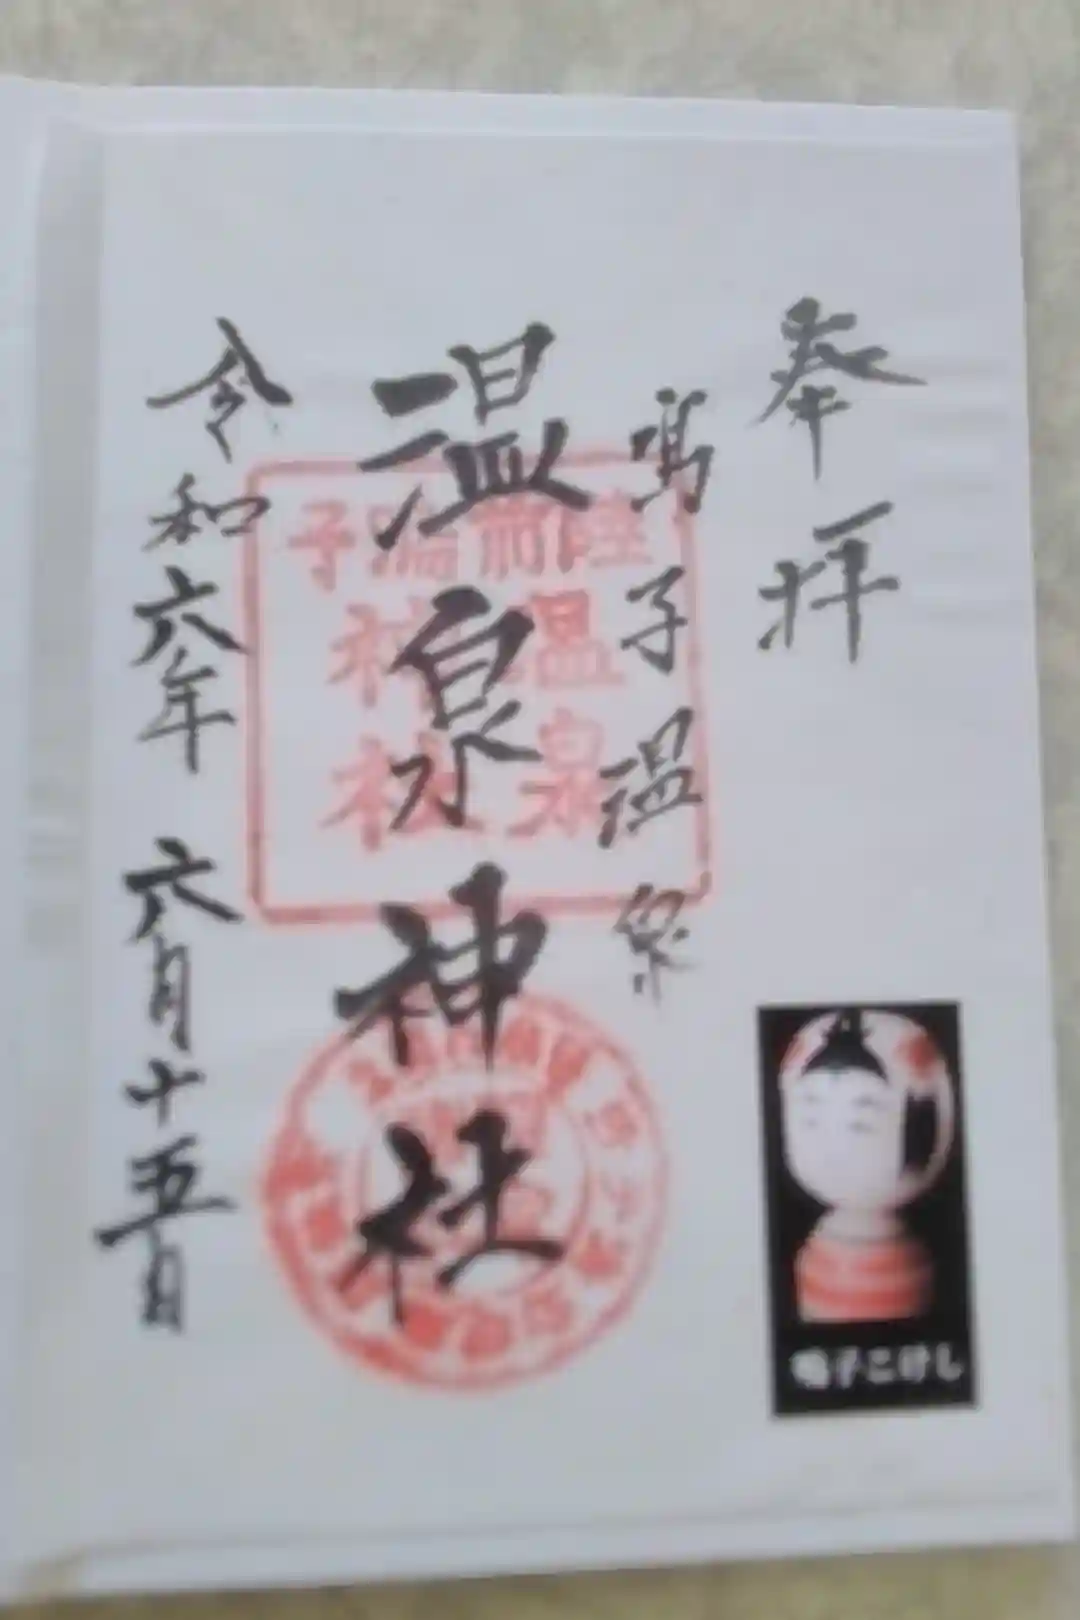 奉拝
鳴子温泉
温泉神社
令和六年 六月十五日
陸前鳴子
温泉
神社
鳴子こけし